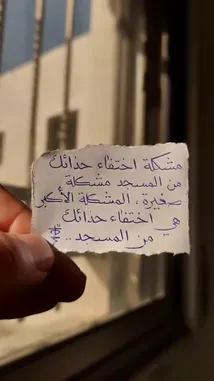 مشكلة اختفاء حذائك
من المسجد مشكلة
صغيرة، المشكلة الأكبر
هي اختفاء حذائك
من المسجد..